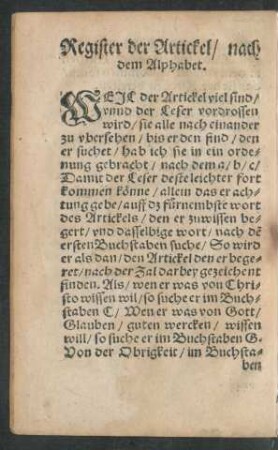 Register der Artickel/ nach
dem Alphabet.
WEJL der Artickel viel sind/
vnnd der Leser vordrossen
wird/ sie alle nach einander
zu vbersehen/ bis er den find/ den
er suchet/ hab ich sie in ein orde-
nung gebracht/ nach dem a/ b/ c/
Damit der Leser deste leichter fort
kommen könne/ allein das er ach-
tung gebe/ auff dz fürnembste wort
des Artickels/ den er zuwissen be-
gert/ vnd dasselbige wort/ nach dē
ersten Buchstaben suche/ So wird
er als dan/ den Artickel den er bege-
ret/ nach der Zal darbey gezeichent
finden. Als/ wen er was von Chri-
sto wissen wil/ so suche er im Buch-
staben C/ Wen er was von Gott/
Glauben/ guten wercken/ wissen
will/ so suche er im Buchstaben G.
Von der Obrigkeit/ im Buchsta-
ben